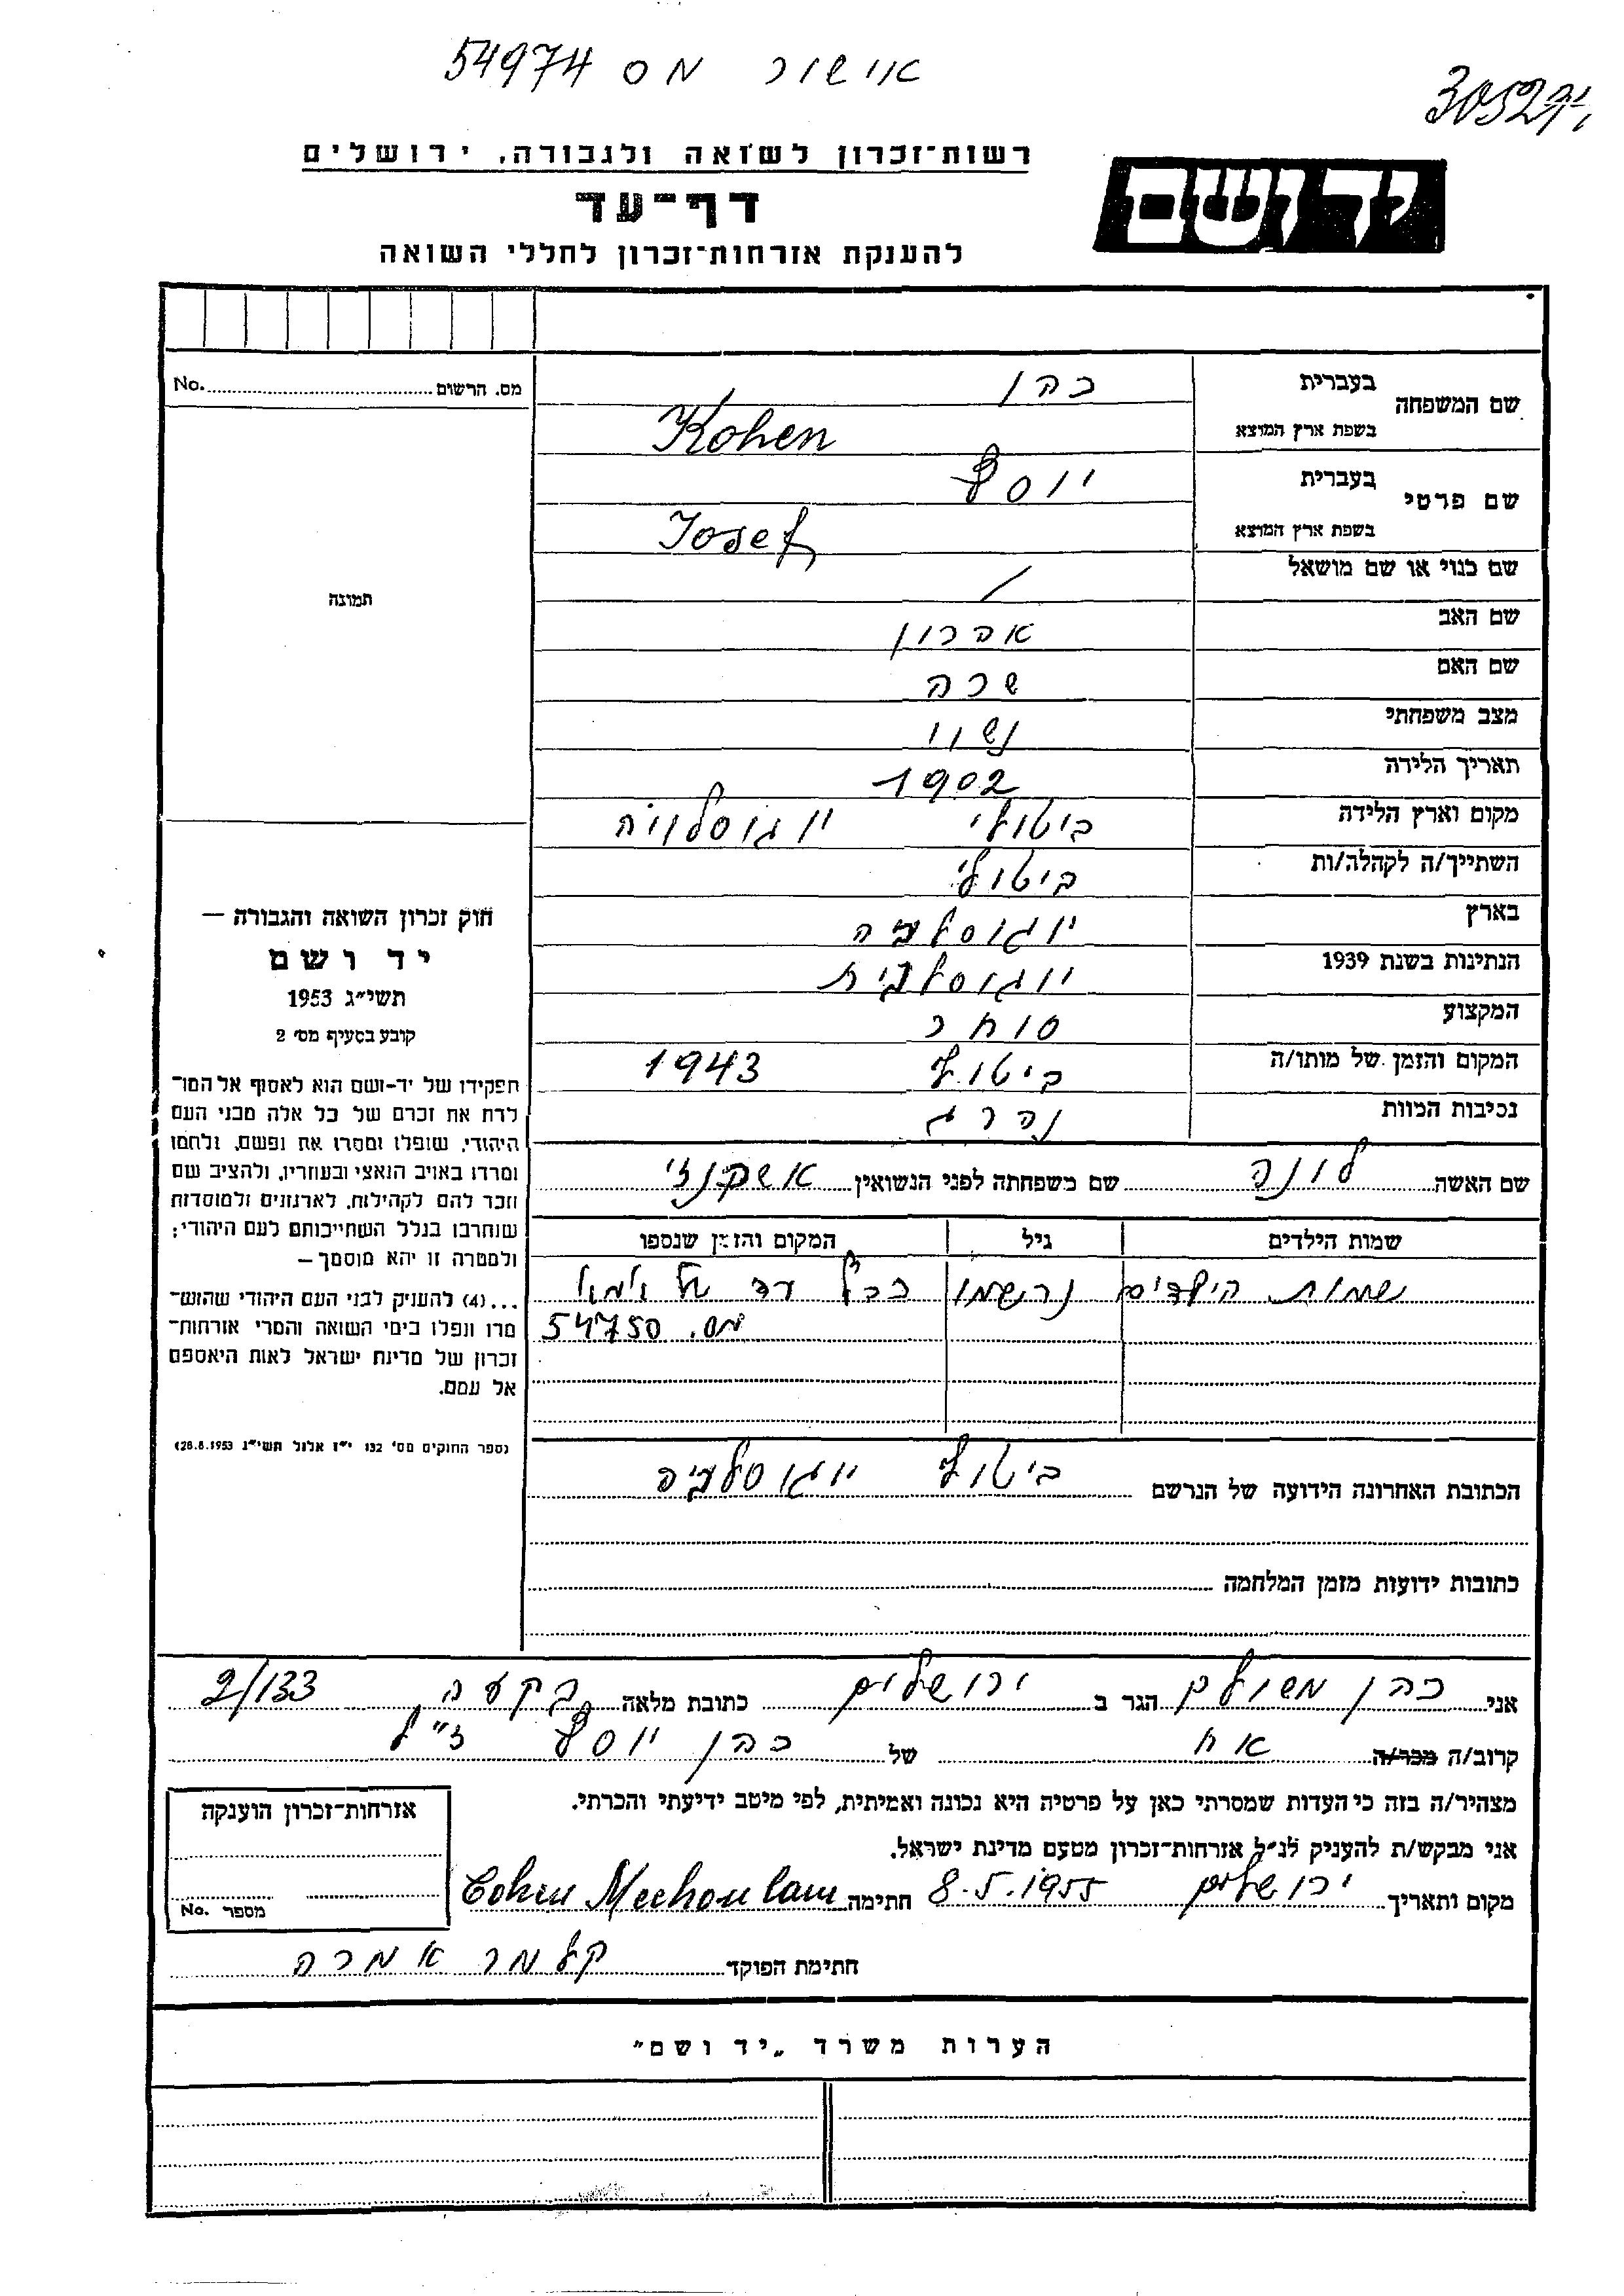 אישור מס 54974
יד ושם
רשות־זכרון לשואה ולגבורה, ירושלים
דף־עד
להענקת אזרחות־זכרון לחללי השואה
מס. הרשום No.
תמונה
שם המשפחה בעברית כהן
בשפת ארץ המוצא Kohen
שם פרטי בעברית יוסף
בשפת ארץ המוצא Josef
שם כנוי או שם מושאל /
שם האב אהרון
שם האם שרה
מצב משפחתי נשוי
תאריך הלידה 1902
מקום וארץ הלידה ביטולי יוגוסלויה
השתייך/ה לקהלה/ות ביטולי
בארץ יוגוסלביה
הנתינות בשנת 1939 יוגוסלבית
המקצוע סוחר
המקום והזמן של מותו/ה ביטולי 1943
נסיבות המוות נהרג
שם האשה לונה שם משפחתה לפני הנשואין אשכנזי
שמות הילדים גיל המקום והזמן שנספו
שמות הילדים נרשמו בדף עד של
מס. 54750
הכתובת האחרונה הידועה של הנרשם ביטולי יוגוסלביה
כתובות ידועות מזמן המלחמה
חוק זכרון השואה והגבורה —
יד ושם
תשי״ג 1953
קובע בסעיף מס׳ 2
תפקידו של יד-ושם הוא לאסוף אל המו־
לדת את זכרם של כל אלה מבני העם
היהודי, שנפלו ומסרו את נפשם, נלחמו
ומרדו באויב הנאצי ובעוזריו, ולהציב שם
וזכר להם לקהילות, לארגונים ולמוסדות
שנחרבו בגלל השתייכותם לעם היהודי;
ולמטרה זו יהא מוסמך —
...(4) להעניק לבני העם היהודי שהוש־
מדו ונפלו בימי השואה והמרי אזרחות־
זכרון של מדינת ישראל לאות היאספם
אל עמם.
(ספר החוקים מס׳ 132 י״ז אלול תשי״ג 28.8.1953)
אני כהן משולם הגר ב ירושלים כתובת מלאה בקעה, 2/133
קרוב/ה מכר/ה אח של כהן יוסף ז״ל
מצהיר/ה בזה כי העדות שמסרתי כאן על פרטיה היא נכונה ואמיתית, לפי מיטב ידיעתי והכרתי.
אני מבקש/ת להעניק לנ״ל אזרחות־זכרון מטעם מדינת ישראל.
מקום ותאריך ירושלים 8.5.1955 חתימה Cohen Mechoulam
חתימת הפוקד קלמר אמרה
אזרחות־זכרון הוענקה
מספר No.
הערות משרד „יד ושם״